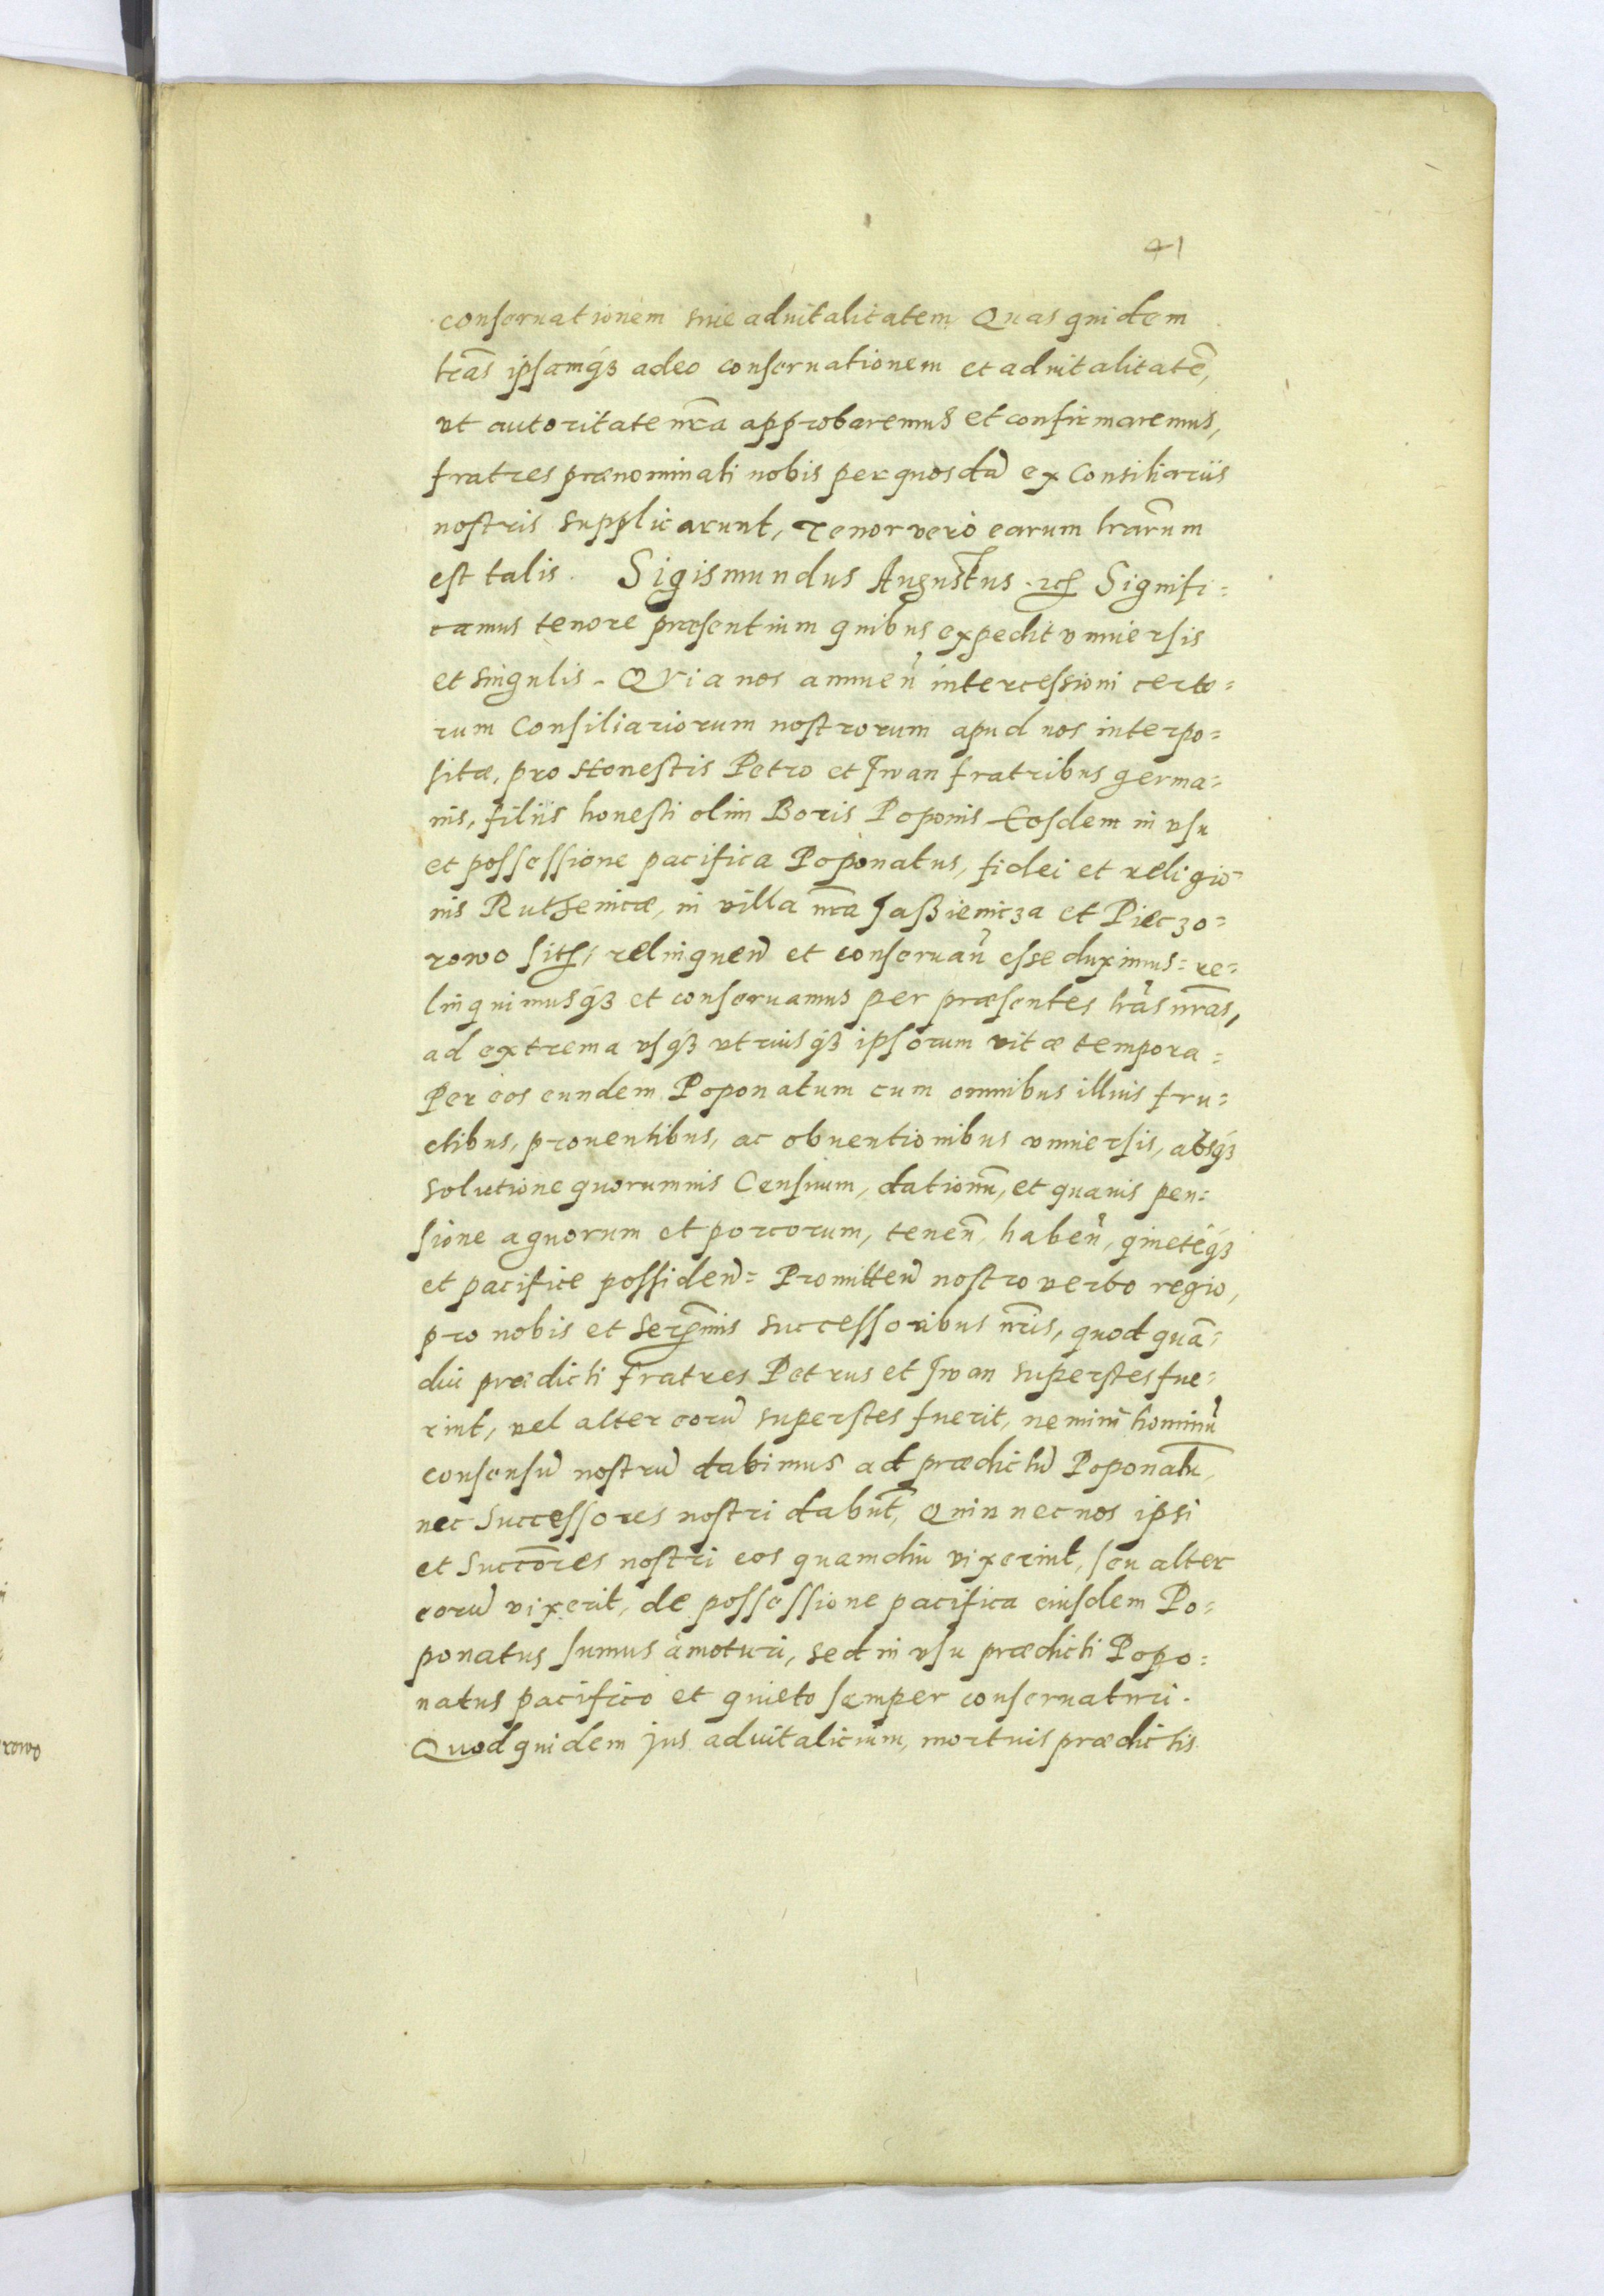 41
conseruationem siue aduitalitatem Quas quidem
lr̃as ipsamq́ꝫ adeo conseruationem et aduitalitatẽ,
vt autoritate nr̃a approbaremus et confirmaremus,
fratres prænominati nobis per quosdã ex Consiliariis
nostris supplicarunt, Tenor verò earum lrãrum
est talis. Sigismundus Augustus ⁊cꝭ Signifi=
camus tenore præsentium quibus expedit vniuersis
et singulis. QVia nos annueñ intercessioni certo=
rum Consiliariorum nostrorum apud nos interpo=
sitæ, pro Honestis Petro et Jwan fratribus germa=
nis, filiis honesti olim Boris Poponis Eosdem in vsu
et possessione pacifica Poponatus, fidei et religio
nis Ruthenicæ, in villa nr̃a Jaßienicza et Pieczo=
rowo sitꝭ, relinqueñ et conseruañ esse duximus= re=
linquimusq́ꝫ et conseruamus per præsentes lrãs nrãs,
ad extrema vsq́ꝫ vtriusq́ꝫ ipsorum vitæ tempora=
Per eos eundem Poponatum cum omnibus illius fru=
ctibus, prouentibus, ac obuentionibus vniuersis, absq́ꝫ
solutione quorumuis Censuum, dationũ, et quauis pen=
sione agnorum et porcorum, teneñ, habeñ, quieteq́ꝫ
et pacifice possideñ= Promitteñ nostro verbo regio,
pro nobis et Serẽmis successoribus nr̃is, quod quã=
diu prædicti fratres Petrus et Jwan superstes fue=
rint, vel alter eorũ superstes fuerit, nemini hominũ
consensũ nostrũ dabimus ad prædictũ Poponatũ,
nec Successores nostri dabũt, Quin nec nos ipsi
et Succõres nostri eos quamdiu vixerint, seu alter
eorũ vixerit, de possessione pacifica eiusdem Po=
ponatus sumus àmoturi, sed in vsu prædicti Popo=
natus pacifico et quieto semper conseruaturi.
Quod quidem jus aduitalicium, mortuis prædictis
rowo